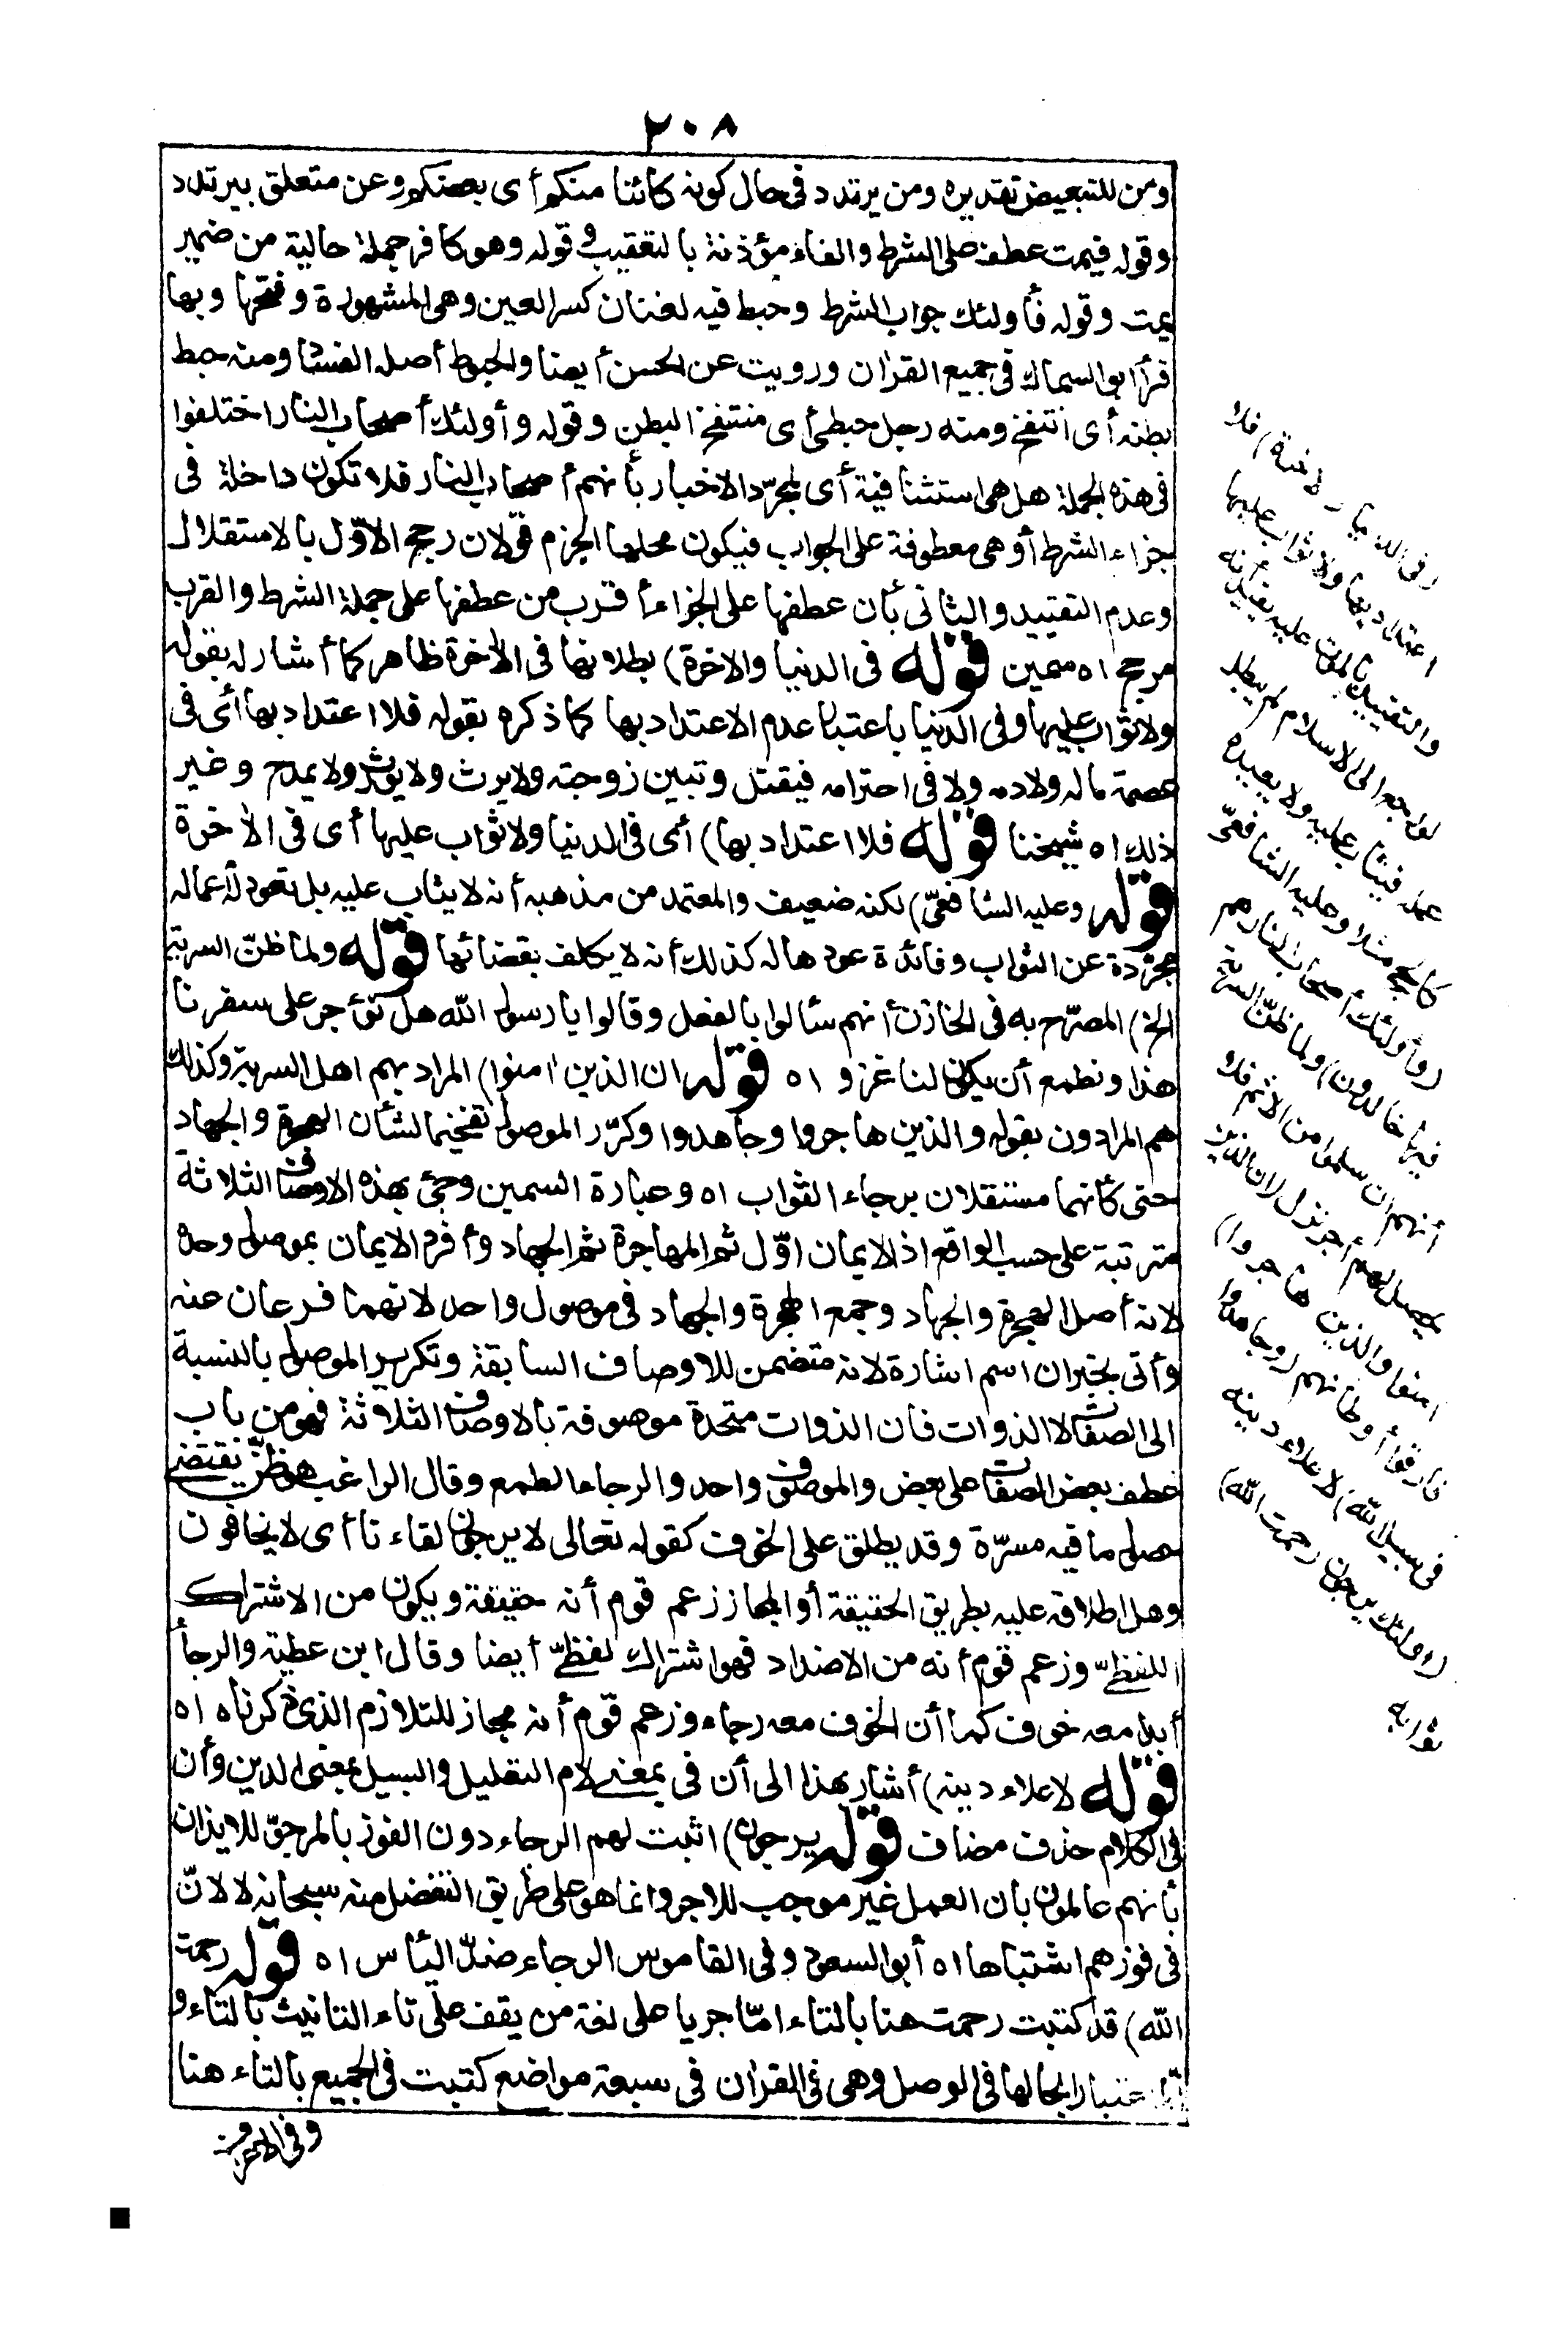 ٢٠٨
ومن للتبعيض تقديره ومن يرتدد في حال كونه كائنا منكم أى بعضكم وعن متعلق بيرتدد
وقوله فيمت عطف على الشرط والفاء مؤذنة بالتعقيب وقوله وهو كافر جملة حالية من ضمير
يمت وقوله فأولئك جواب الشرط وحبط فيه لغتان كسر العين وهى المشهورة وفتحها وبها
قرأ ابو السماك فى جميع القرآن ورويت عن الحسن أيضا والحبوط أصله الفساد ومنه حبط
بطنه أى انتفخ ومنه رجل حبطى أى منتفخ البطن وقوله وأولئك أصحاب النار اختلفوا
فى هذه الجملة هل هى استئنافية أى لمجرّد الاخبار بأنهم أصحاب النار فلا تكون داخلة فى
جزاء الشرط أو هى معطوفة على الجواب فيكون محلها الجزم قولان رجح الاوّل بالاستقلال
وعدم التقييد والثانى بأن عطفها على الجزاء أقرب من عطفها على جملة الشرط والقرب
مرجح اه سمين قوله فى الدنيا والاخرة) بطلانها فى الآخرة ظاهر كما أشار له بقوله
ولا ثواب عليها وفى الدنيا باعتبار عدم الاعتداد بها كما ذكره بقوله فلا اعتداد بها أى فى
عصمة ماله ولا دمه ولا فى احترامه فيقتل وتبين زوجته ولا يرث ولا يورث ولا يمدح وغير
ذلك اه شيخنا قوله فلا اعتداد بها) أى فى الدنيا ولا ثواب عليها أى فى الآخرة
قوله وعليه الشافعىّ) لكنه ضعيف والمعتمد من مذهبه أنه لا يثاب عليه بل تعود له أعماله
مجرّدة عن الثواب وفائدة عودها له كذلك أنه لا يكلف بقضائها قوله ولما ظنّ السرية
الخ) المصرّح به فى الخازن أنهم سألوا بالفعل وقالوا يا رسول الله هل نؤجر على سفرنا
هذا ونطمع أن يكون لنا غزو اه قوله ان الذين امنوا) المراد بهم اهل السرية وكذلك
هم المرادون بقوله والذين هاجروا وجاهدوا وكرّر الموصول تفخيما لشأن الهجرة والجهاد
حتى كأنهما مستقلان برجاء الثواب اه وعبارة السمين وجئ بهذه الاوصاف الثلاثة
مترتبة على حسب الواقع اذ الايمان اوّل ثم المهاجرة ثم الجهاد وأفرد الايمان بموصول وحده
لانه أصل الهجرة والجهاد وجمع الهجرة والجهاد فى موصول واحد لانهما فرعان عنه
وأتى بخبر ان اسم اشارة لانه متضمن للاوصاف السابقة وتكرير الموصول بالنسبة
الى الصفات لا الذوات فان الذوات متحدة موصوفة بالاوصاف الثلاثة فهو من باب
عطف بعض الصفات على بعض والموصوف واحد والرجاء الطمع وقال الراغب هو ظنّ يقتضى
حصول ما فيه مسرّة وقد يطلق على الخوف كقوله تعالى لا يرجون لقاءنا أى لا يخافون
وهل اطلاقه عليه بطريق الحقيقة أو المجاز زعم قوم أنه حقيقة ويكون من الاشتراك
اللفظىّ وزعم قوم أنه من الاضداد فهو اشتراك لفظىّ أيضا وقال ابن عطية والرجاء
أبدا معه خوف كما أن الخوف معه رجاء وزعم قوم أنه مجاز للتلازم الذى ذكرناه اه
قوله لاعلاء دينه) أشار بهذا الى أن فى بمعنى لام التعليل والسبيل بمعنى الدين وأن
فى الكلام حذف مضاف قوله يرجون) اثبت لهم الرجاء دون الفوز بالمرجوّ للايذان
بأنهم عالمون بأن العمل غير موجب للاجر وانما هو على طريق التفضل منه سبحانه لا لانّ
فى فوزهم اشتباها اه أبو السعود وفى القاموس الرجاء ضدّ اليأس اه قوله رحمت
الله) قد كتبت رحمت هنا بالتاء امّا جريا على لغة من يقف على تاء التانيث بالتاء و
امّا اعتبارا بحالها فى الوصل وهى فى القران فى سبعة مواضع كتبت فى الجميع بالتاء هنا
وفى الاعراف
(فى الدنيا والاخرة) فلا
اعتداد بها ولا ثواب عليها
والتقييد بالموت عليه يفيد أنه
لو رجع الى الاسلام لم يبطل
عمله فيثاب عليه ولا يعيده
كالحج مثلا وعليه الشافعىّ
(وأولئك أصحاب النار هم
فيها خالدون) ولما ظنّ السرية
أنهم ان سلموا من الاثم فلا
يحصل لهم أجر نزل (ان الذين
امنوا والذين هاجروا)
فارقوا أوطانهم (وجاهدوا
فى سبيل الله) لاعلاء دينه
(اولئك يرجون رحمت الله)
ثوابه